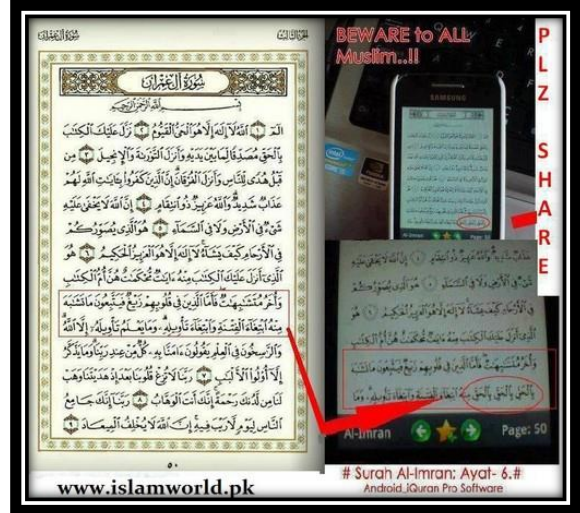 الجزء الثالث
سُورَةُ آلِ عِمْرَانَ
سُورَةُ آلِ عِمْرَانَ
بِسْمِ اللَّهِ الرَّحْمَٰنِ الرَّحِيمِ
الٓمٓ ١ ٱللَّهُ لَآ إِلَٰهَ إِلَّا هُوَ ٱلْحَىُّ ٱلْقَيُّومُ ٢ نَزَّلَ عَلَيْكَ ٱلْكِتَٰبَ
بِٱلْحَقِّ مُصَدِّقًا لِّمَا بَيْنَ يَدَيْهِ وَأَنزَلَ ٱلتَّوْرَىٰةَ وَٱلْإِنجِيلَ ٣ مِن
قَبْلُ هُدًى لِّلنَّاسِ وَأَنزَلَ ٱلْفُرْقَانَ إِنَّ ٱلَّذِينَ كَفَرُوا۟ بِـَٔايَٰتِ ٱللَّهِ لَهُمْ
عَذَابٌ شَدِيدٌ وَٱللَّهُ عَزِيزٌ ذُو ٱنتِقَامٍ ٤ إِنَّ ٱللَّهَ لَا يَخْفَىٰ عَلَيْهِ
شَىْءٌ فِى ٱلْأَرْضِ وَلَا فِى ٱلسَّمَآءِ ٥ هُوَ ٱلَّذِى يُصَوِّرُكُمْ
فِى ٱلْأَرْحَامِ كَيْفَ يَشَآءُ لَآ إِلَٰهَ إِلَّا هُوَ ٱلْعَزِيزُ ٱلْحَكِيمُ ٦ هُوَ
ٱلَّذِىٓ أَنزَلَ عَلَيْكَ ٱلْكِتَٰبَ مِنْهُ ءَايَٰتٌ مُّحْكَمَٰتٌ هُنَّ أُمُّ ٱلْكِتَٰبِ
وَأُخَرُ مُتَشَٰبِهَٰتٌ فَأَمَّا ٱلَّذِينَ فِى قُلُوبِهِمْ زَيْغٌ فَيَتَّبِعُونَ مَا تَشَٰبَهَ
مِنْهُ ٱبْتِغَآءَ ٱلْفِتْنَةِ وَٱبْتِغَآءَ تَأْوِيلِهِۦ وَمَا يَعْلَمُ تَأْوِيلَهُۥٓ إِلَّا ٱللَّهُ
وَٱلرَّٰسِخُونَ فِى ٱلْعِلْمِ يَقُولُونَ ءَامَنَّا بِهِۦ كُلٌّ مِّنْ عِندِ رَبِّنَا وَمَا يَذَّكَّرُ
إِلَّآ أُو۟لُوا۟ ٱلْأَلْبَٰبِ ٧ رَبَّنَا لَا تُزِغْ قُلُوبَنَا بَعْدَ إِذْ هَدَيْتَنَا وَهَبْ
لَنَا مِن لَّدُنكَ رَحْمَةً إِنَّكَ أَنتَ ٱلْوَهَّابُ ٨ رَبَّنَآ إِنَّكَ جَامِعُ
ٱلنَّاسِ لِيَوْمٍ لَّا رَيْبَ فِيهِ إِنَّ ٱللَّهَ لَا يُخْلِفُ ٱلْمِيعَادَ ٩
٥٠
www.islamworld.pk
BEWARE to ALL
Muslim..!!
SAMSUNG
PLZ SHARE
عَذَابٌ شَدِيدٌ وَٱللَّهُ عَزِيزٌ ذُو ٱنتِقَامٍ ٤ إِنَّ ٱللَّهَ لَا يَخْفَىٰ عَلَيْهِ
شَىْءٌ فِى ٱلْأَرْضِ وَلَا فِى ٱلسَّمَآءِ ٥ هُوَ ٱلَّذِى يُصَوِّرُكُمْ
فِى ٱلْأَرْحَامِ كَيْفَ يَشَآءُ لَآ إِلَٰهَ إِلَّا هُوَ ٱلْعَزِيزُ ٱلْحَكِيمُ ٦ هُوَ
ٱلَّذِىٓ أَنزَلَ عَلَيْكَ ٱلْكِتَٰبَ مِنْهُ ءَايَٰتٌ مُّحْكَمَٰتٌ هُنَّ أُمُّ ٱلْكِتَٰبِ
وَأُخَرُ مُتَشَٰبِهَٰتٌ فَأَمَّا ٱلَّذِينَ فِى قُلُوبِهِمْ زَيْغٌ فَيَتَّبِعُونَ مَا تَشَٰبَهَ
بِٱلْحَقِّ بِٱلْحَقِّ بِٱلْحَقِّ مِنْهُ ٱبْتِغَآءَ ٱلْفِتْنَةِ وَٱبْتِغَآءَ تَأْوِيلِهِۦ وَمَا
Al-Imran
Page: 50
# Surah Al-Imran: Ayat- 6.#
Android_iQuran Pro Software